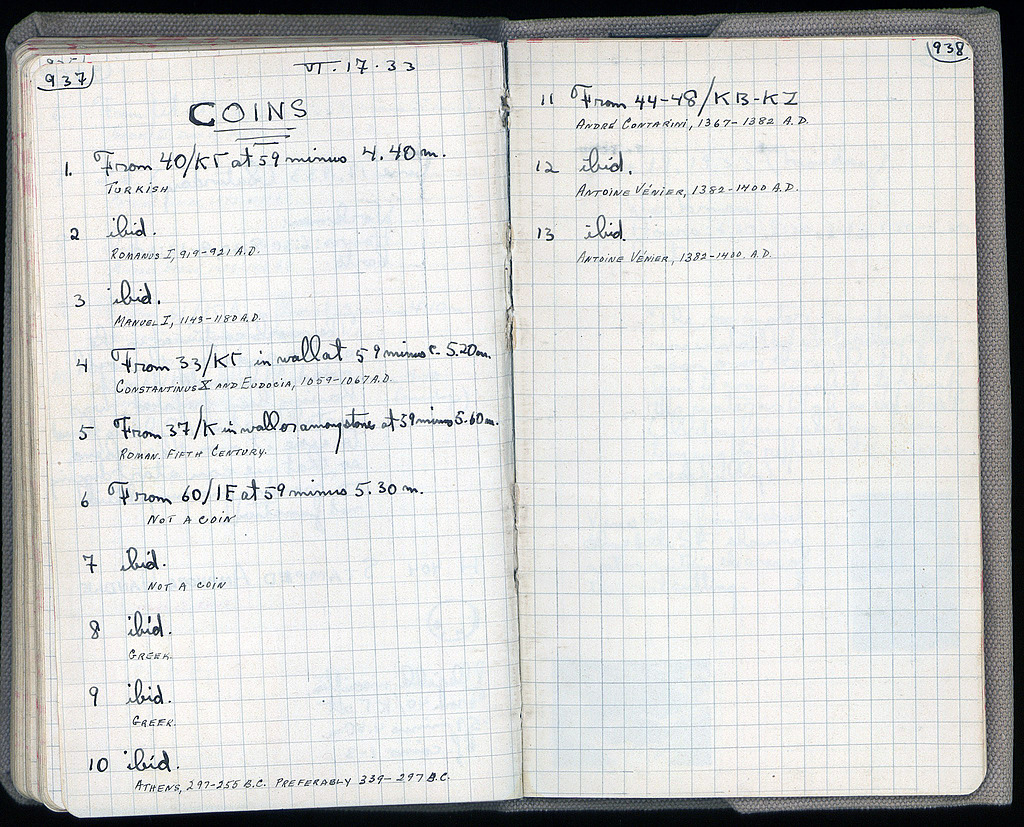 937
VI·17·33
COINS
1. From 40/ΚΓ at 59 minus 4.40 m.
TURKISH
2 ibid.
ROMANUS I, 919-921 A.D.
3 ibid.
MANUEL I, 1143-1180 A.D.
4 From 33/ΚΓ in wall at 59 minus 5.20m.
CONSTANTINUS X AND EUDOCIA, 1059-1067 A.D.
5 From 37/K in wall or among stones at 59 minus 5.60m.
ROMAN. FIFTH CENTURY.
6 From 60/ΙΕ at 59 minus 5.30 m.
NOT A COIN
7 ibid.
NOT A COIN
8 ibid.
GREEK.
9 ibid.
GREEK.
10 ibid.
ATHENS, 297-255 B.C. PREFERABLY 339-297 B.C.
938
11 From 44-48/ΚΒ-ΚΖ
ANDRÉ CONTARINI, 1367-1382 A.D.
12 ibid.
ANTOINE VÉNIER, 1382-1400 A.D.
13 ibid.
ANTOINE VÉNIER, 1382-1400, A.D.